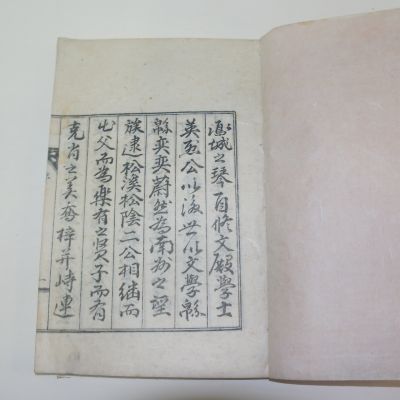 鳳城之琴自修文殿學士
英烈公以後世以文學縣
緜奕奕蔚然爲南州之望
族逮松溪松陰二公相繼而
以父而爲樂有之賢子而有
克肖之美喬梓并峙連